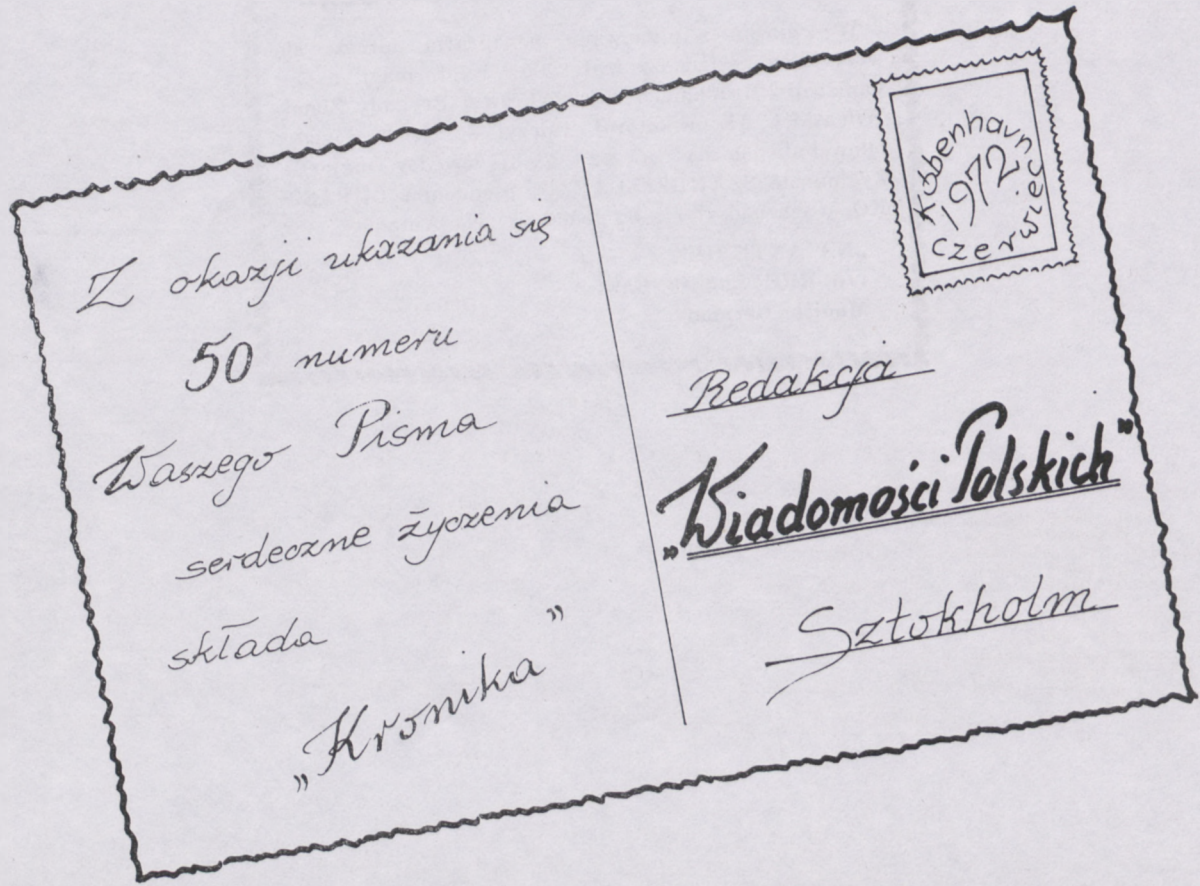 Z okazji ukazania się
50 numeru
Waszego Pisma
serdeczne życzenia
składa
„Kronika”
København
1972
Czerwiec
Redakcja
„Wiadomości Polskich”
Sztokholm